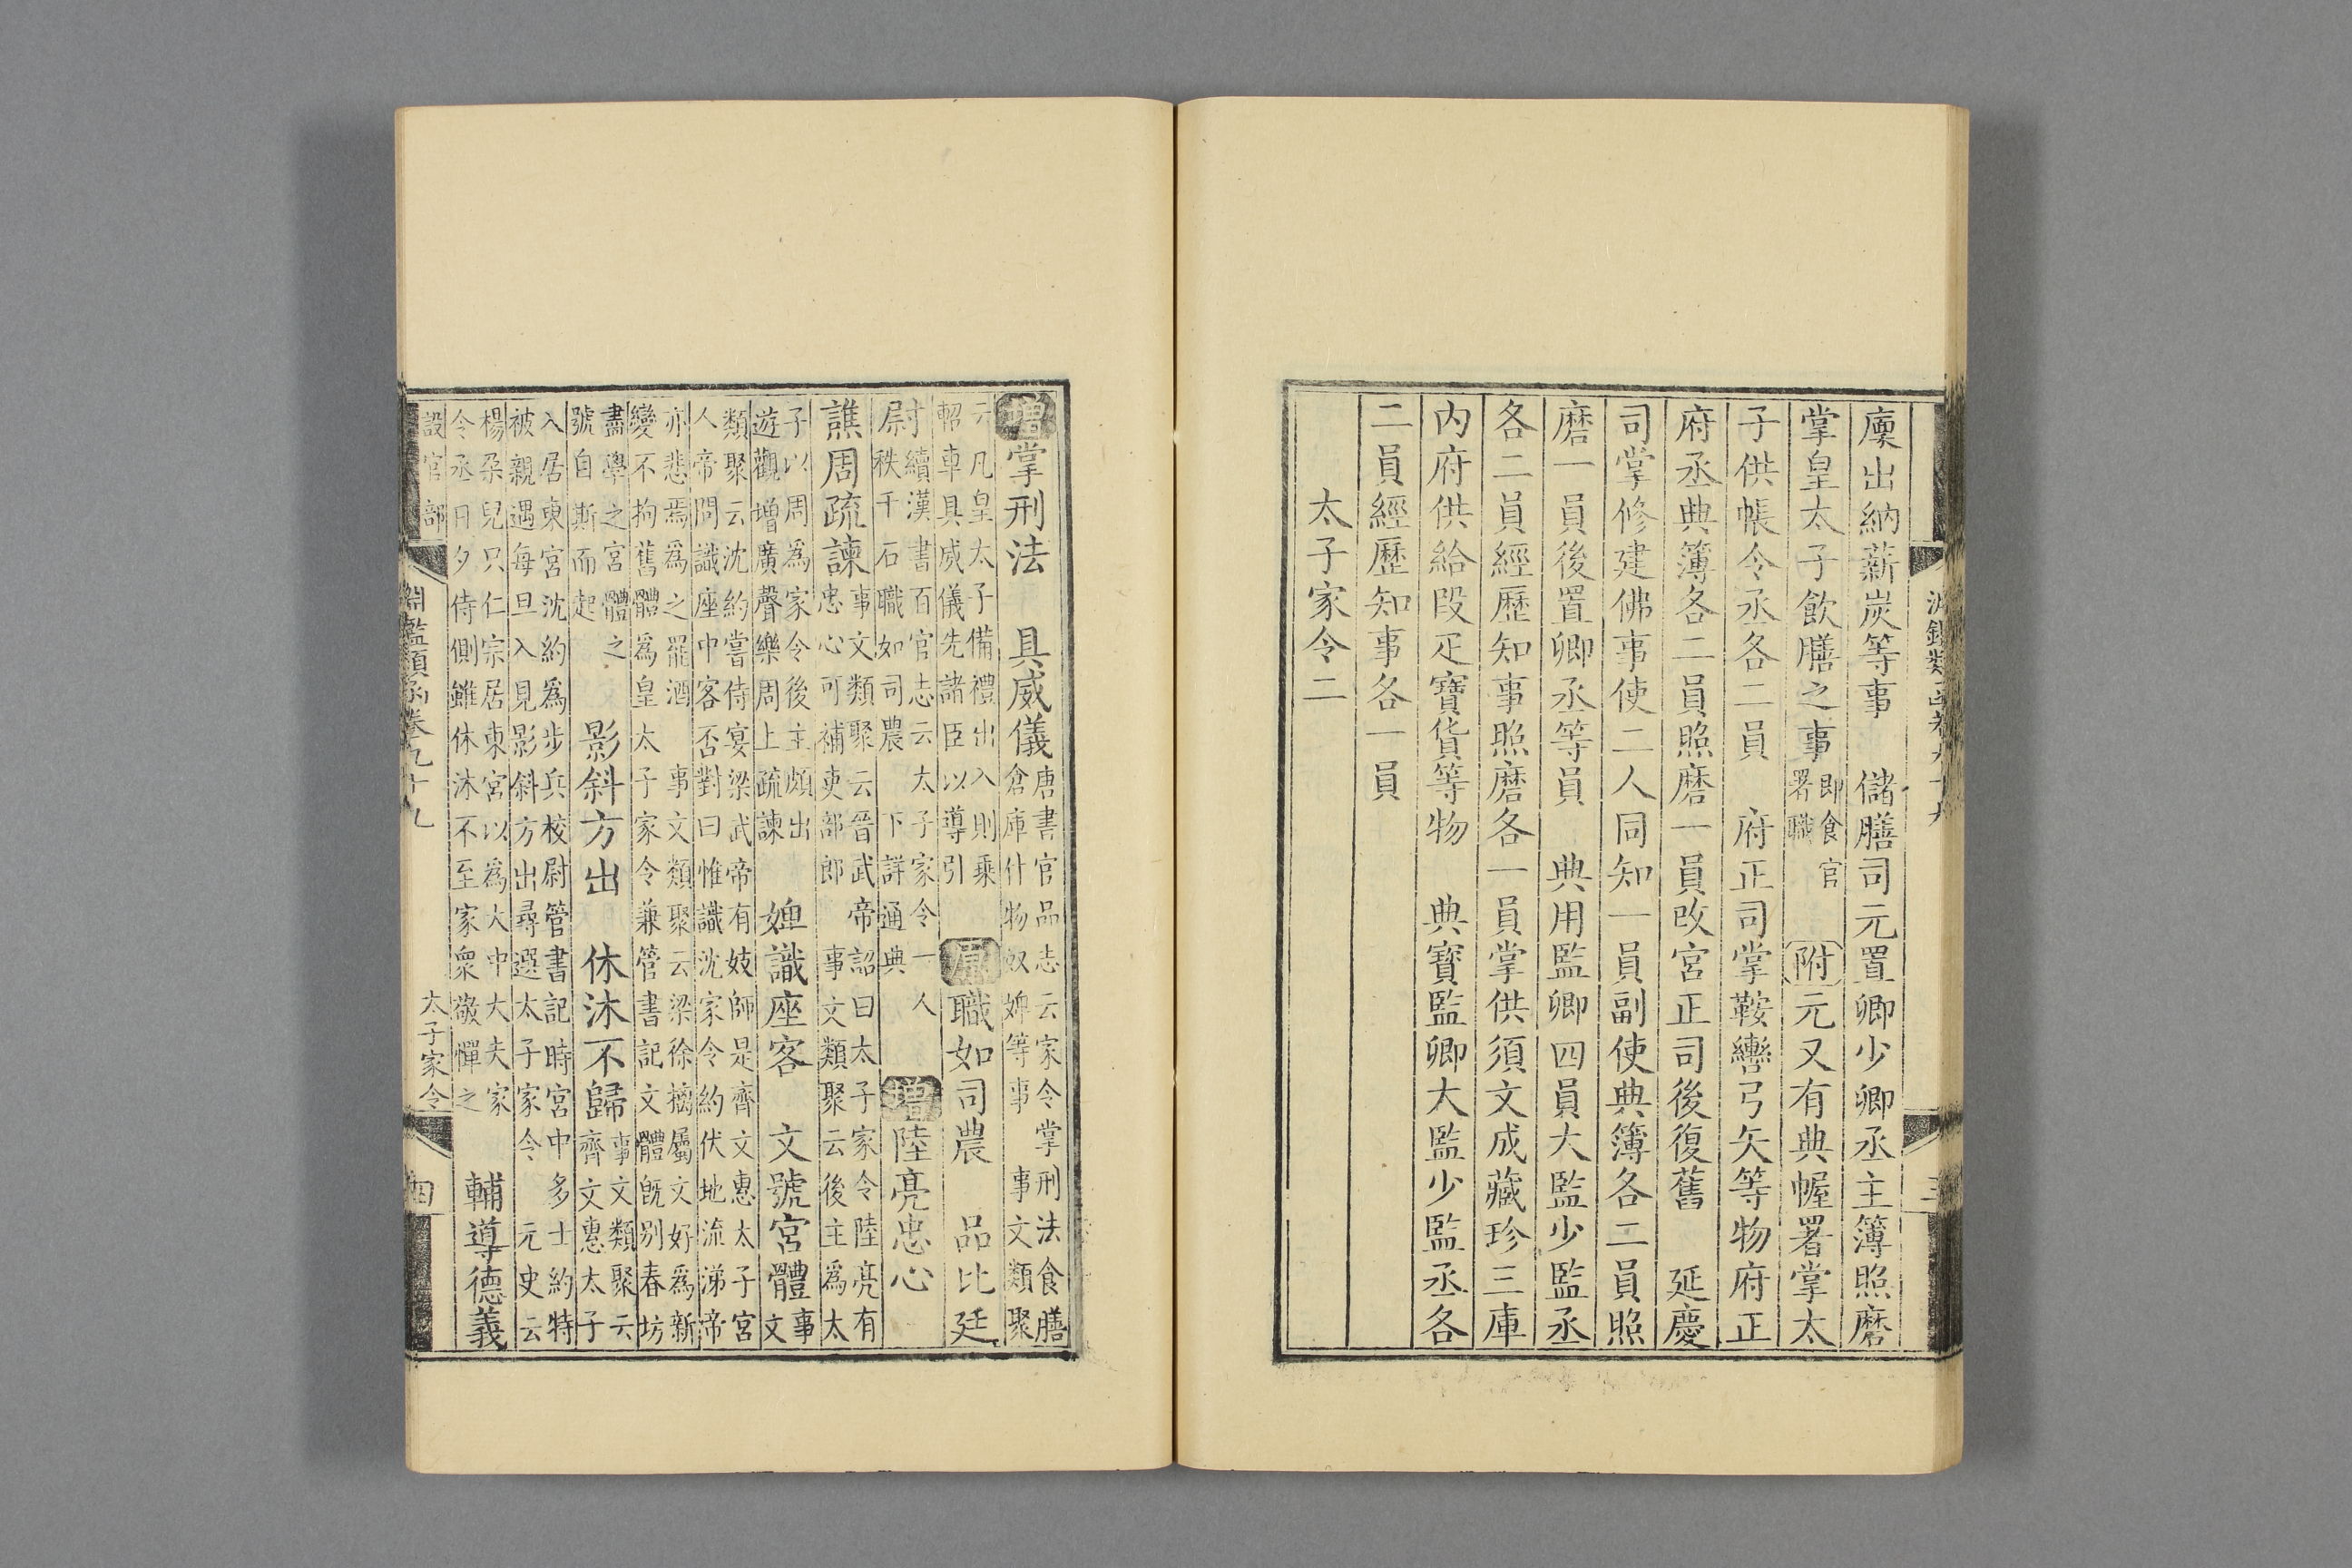 淵鑑類函卷九十九
三
廩出納薪炭等事　儲膳司元置卿少卿丞主簿照磨
掌皇太子飲膳之事即食官署職　附元又有典幄署掌太
子供帳令丞各二員　府正司掌鞍轡弓矢等物府正
府丞典簿各二員照磨一員改宮正司後復舊　延慶
司掌修建佛事使二人同知一員副使典簿各二員照
磨一員後置卿丞等員　典用監卿四員大監少監丞
各二員經歷知事照磨各一員掌供須文成藏珍三庫
內府供給段疋寶貨等物　典寶監卿大監少監丞各
二員經歷知事各一員
太子家令二
增掌刑法　具威儀唐書官品志云家令掌刑法食膳倉庫什物奴婢等事　事文類聚
云凡皇太子備禮出入則乘軺車具威儀先諸臣以導引　原職如司農　品比廷
尉續漢書百官志云太子家令一人秩千石職如司農　下詳通典　增陸亮忠心
譙周疏諫事文類聚云晉武帝詔曰太子家令陸亮有忠心可補吏部郎　事文類聚云後主為太
子以周為家令後主頗出遊觀增廣聲樂周上疏諫　㜑識座客　文號宮體事文
類聚云沈約嘗侍宴梁武帝有妓師是齊文惠太子宮人帝問識座中客否對曰惟識沈家令約伏地流涕帝
亦悲焉為之罷酒　事文類聚云梁徐摛屬文好為新變不拘舊體為皇太子家令兼管書記文體既別春坊
盡學之宮體之號自斯而起　影斜方出　休沐不歸事文類聚云齊文惠太子
入居東宮沈約為步兵校尉管書記時宮中多士約特被親遇每旦入見影斜方出尋選太子家令　元史云
楊朶兒只仁宗居東宮以為大中大夫家令丞日夕侍側雖休沐不至家衆敬憚之　輔導德義
設官部
淵鑑類函卷九十九
太子家令
四